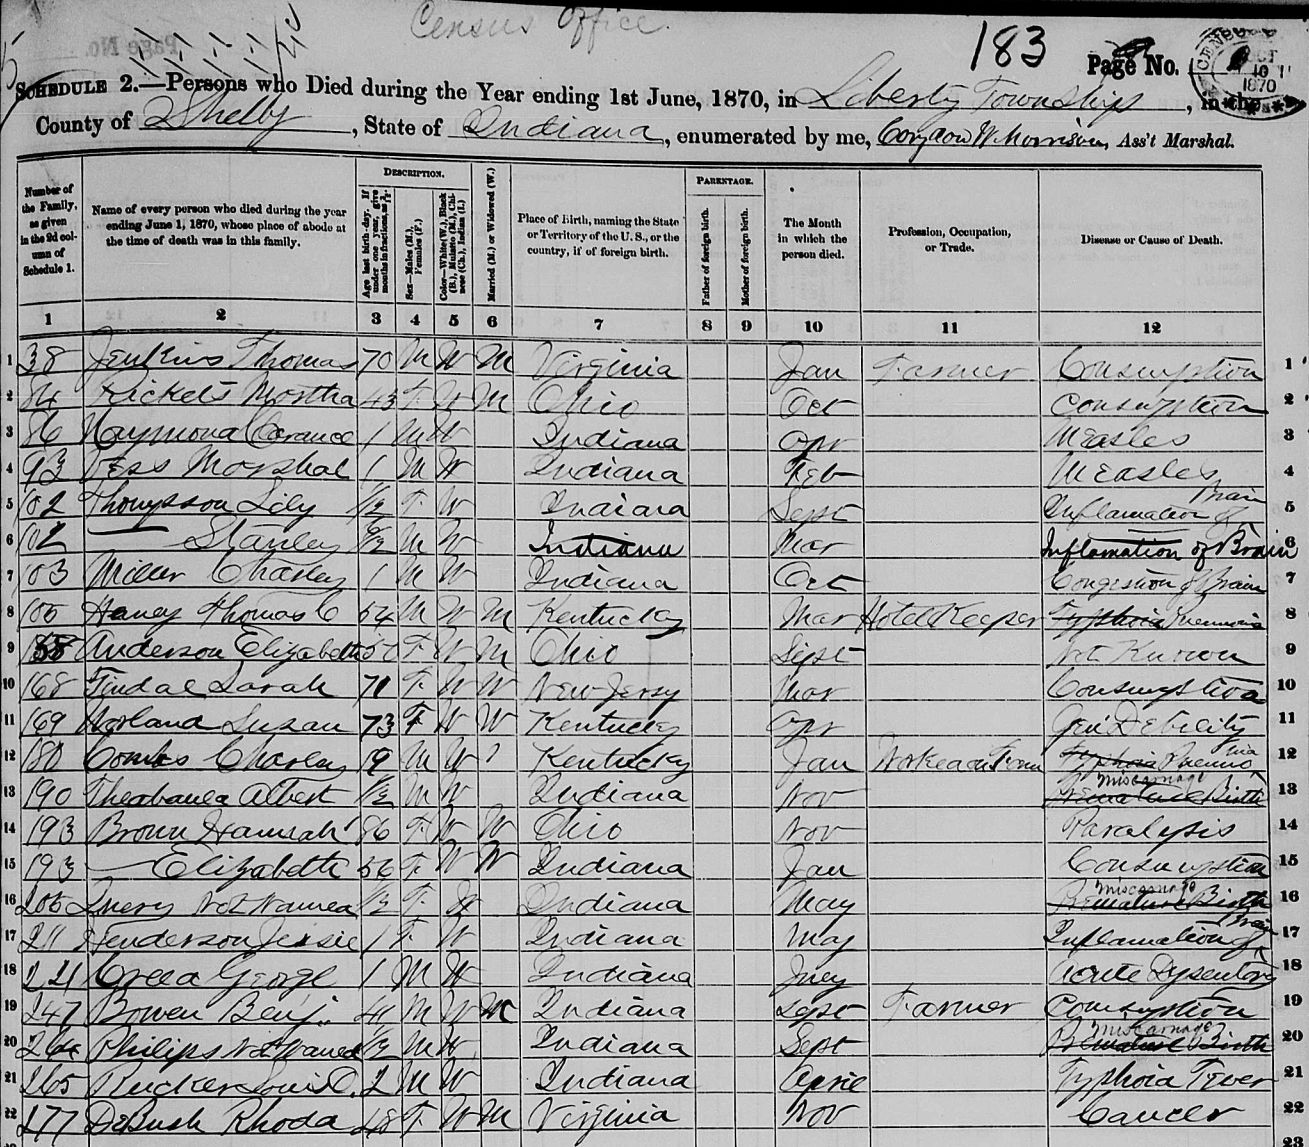 Census Office.
183 Page No.
CENSUS OCT 10 1870
SCHEDULE 2.—Persons who Died during the Year ending 1st June, 1870, in Liberty Township, in the
County of Shelby, State of Indiana, enumerated by me, Corydon W. Morrison, Ass't Marshal.
Number of the Family, as given in the 2d column of Schedule 1.
Name of every person who died during the year ending June 1, 1870, whose place of abode at the time of death was in this family.
DESCRIPTION.
Age last birth-day. If under one year, give months in fractions, as 3/12.
Sex—Males (M.), Females (F.)
Color—White (W.), Black (B.), Mulatto (M.), Chinese (Ch.), Indian (I.)
Married (M.) or Widowed (W.)
Place of Birth, naming the State or Territory of the U. S., or the country, if of foreign birth.
PARENTAGE.
Father of foreign birth.
Mother of foreign birth.
The Month in which the person died.
Profession, Occupation, or Trade.
Disease or Cause of Death.
1 2 3 4 5 6 7 8 9 10 11 12
1 38 Jenkins Thomas 70 M W M Virginia Jan Farmer Consumption 1
2 84 Rickets Martha 43 F W M Ohio Oct Consumption 2
3 86 Raymond Clarance 1 M W Indiana Apr Measles 3
4 93 Vess Marshal 1 M W Indiana Feb Measles 4
5 102 Thompson Lily /12 F W Indiana Sept Inflamation of Brain 5
6 102 — Stanley /12 M W Indiana Mar Inflamation of Brain 6
7 103 Miller Charley 1 M W Indiana Oct Congestion of Brain 7
8 105 Haney Thomas C 54 M W M Kentucky Mar Hotel Keeper Typhoid Pneumonia 8
9 Anderson Elizabeth 50 F W M Ohio Sept Not Known 9
10 168 Tindal Sarah 71 F W W New Jersy Mar Consumption 10
11 169 Susan 73 F W W Kentucky Apr Gen'l Debility 11
12 180 Combs Charley 19 M W Kentucky Jan Works on Farm Typhoid Pneumonia 12
13 190 Albert /12 M W Indiana Nov miscarriage Premature Birth 13
14 193 Brown Hannah 86 F W W Ohio Nov Paralysis 14
15 193 — Elizabeth 56 F W W Indiana Jan Consumption 15
16 205 Not Named /12 F W Indiana May miscarriage Premature Birth 16
17 211 Henderson Jessie 1 F W Indiana May Inflamation of Brain 17
18 221 Creed George 1 M W Indiana July Acute Dysentery 18
19 247 Bowen Benj. 41 M W M Indiana Sept Farmer Consumption 19
20 264 Philips Not Named /12 M W Indiana Sept miscarriage Premature Birth 20
21 265 Rucker 2 M W Indiana Typhoid Fever 21
22 277 DeBush Rhoda 48 F W M Virginia Nov Cancer 22
23